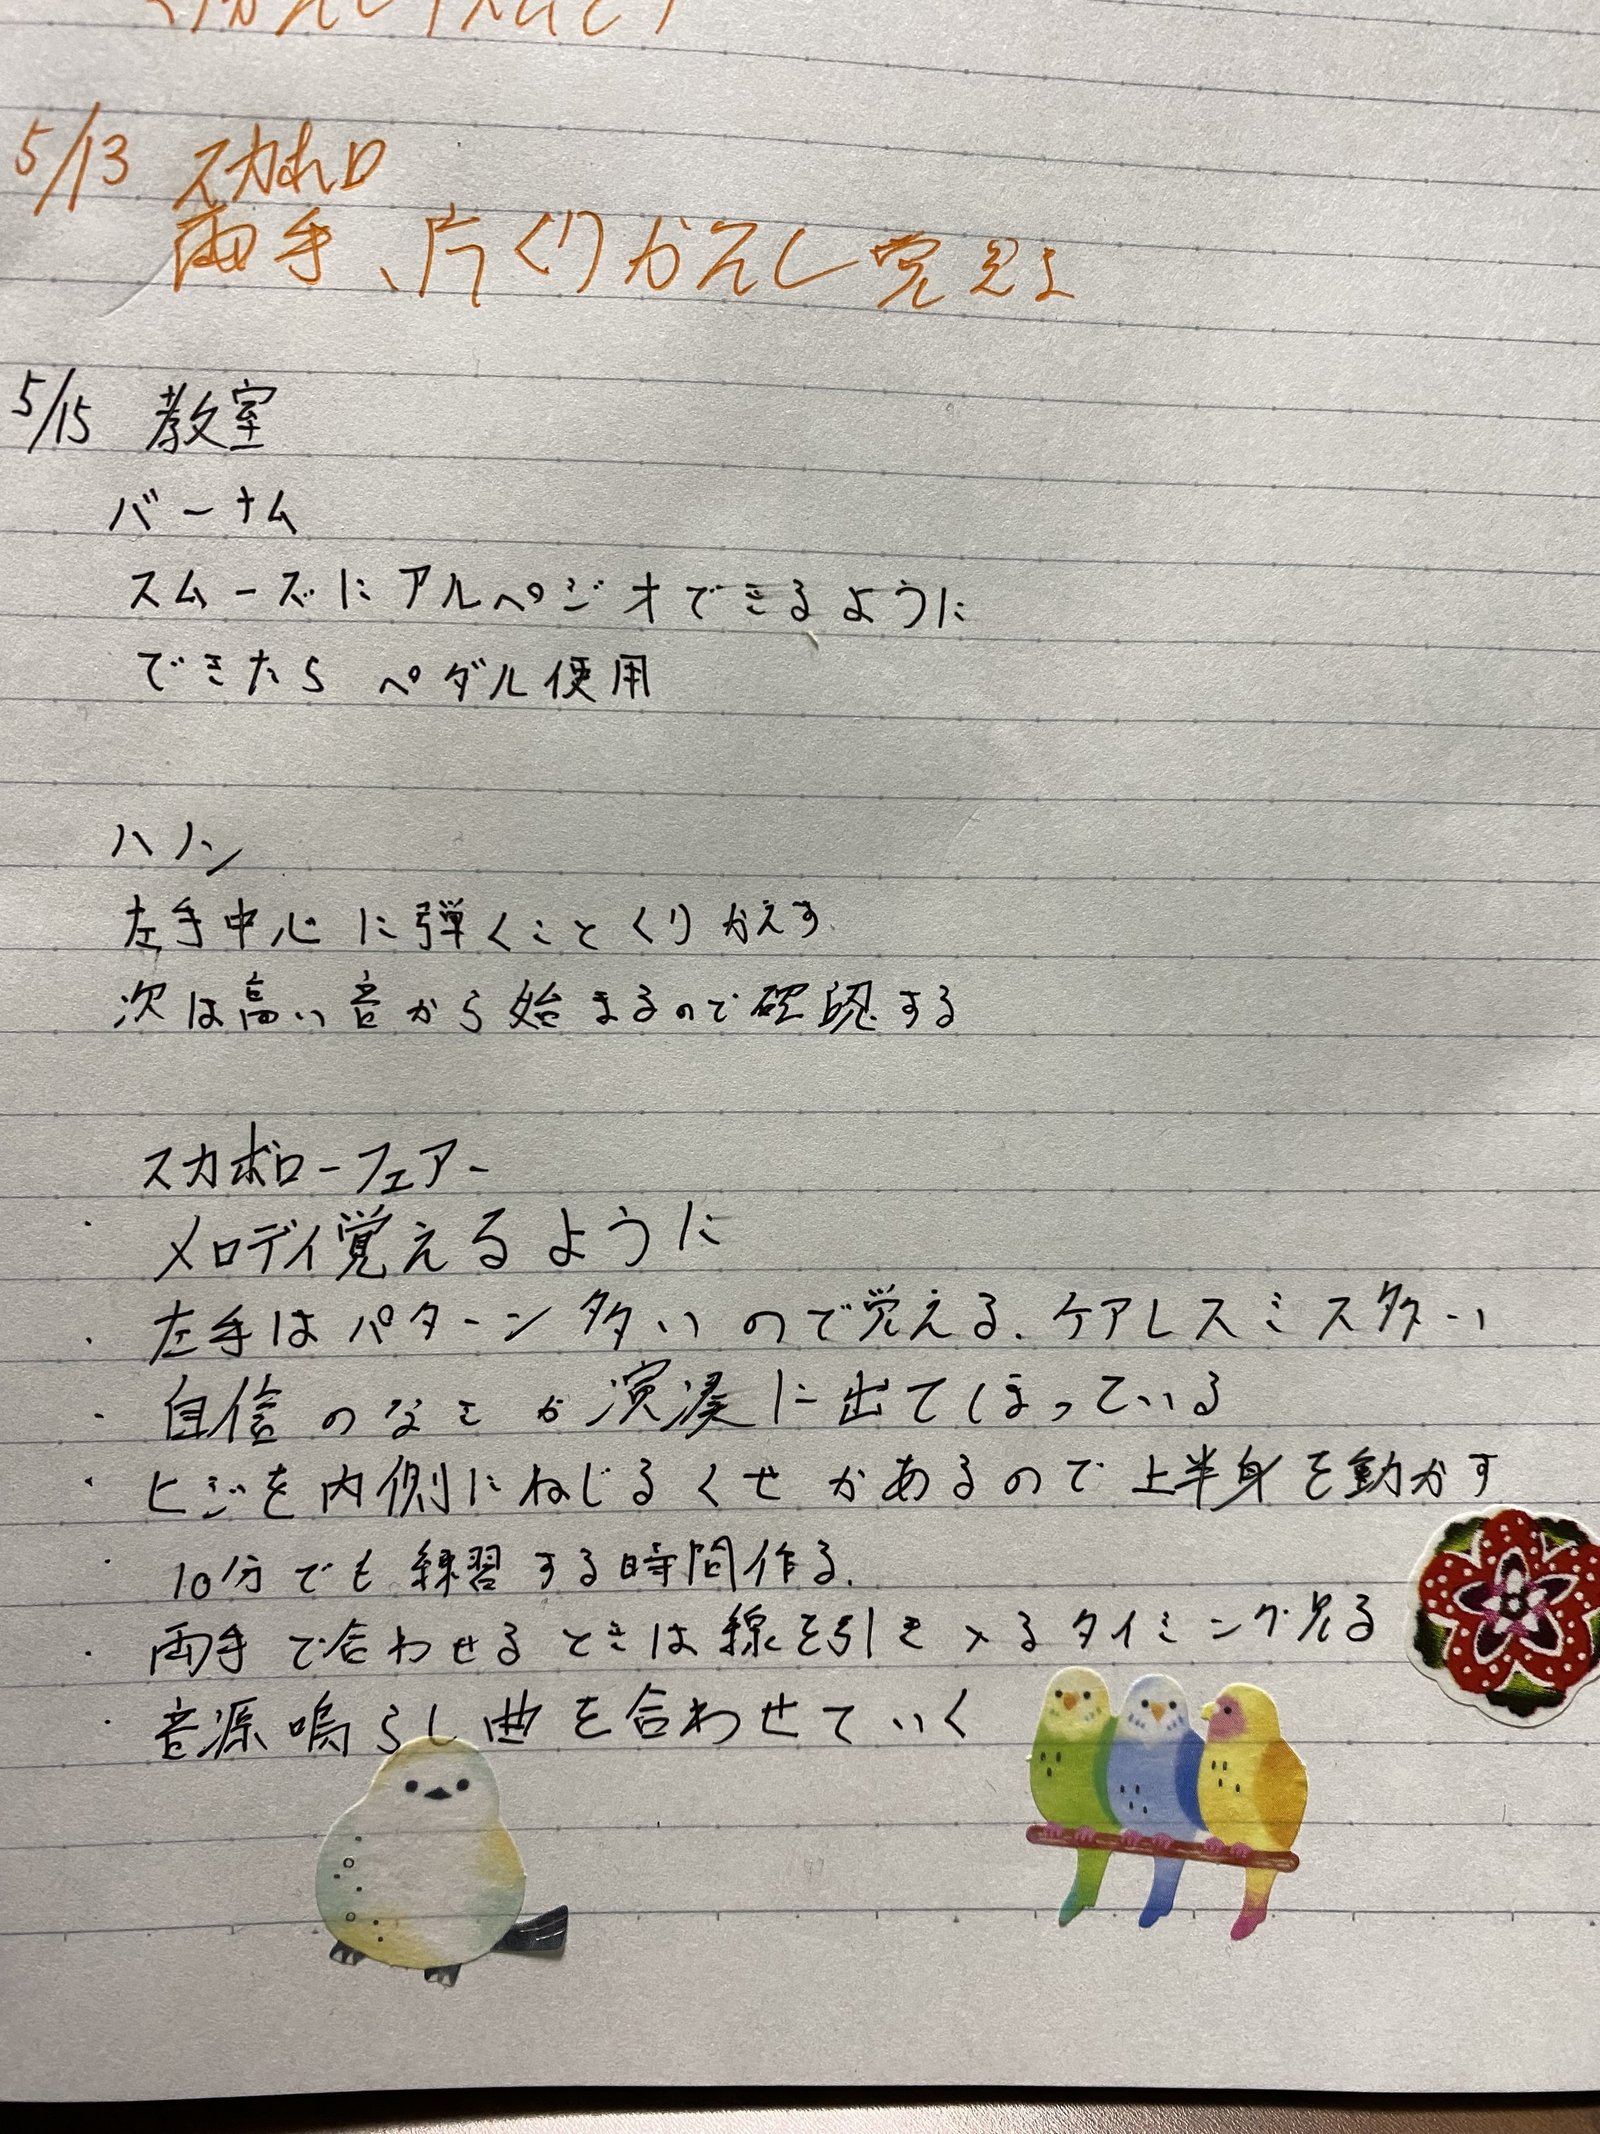 5/13 スカボロ
両手、片くりかえし覚えよ
5/15 教室
バーナム
スムーズにアルペジオできるように
できたら ペダル使用
ハノン
左手中心に弾くことくりかえす
次は高い音から始まるので確認する
スカボローフェアー
・メロディ覚えるように
・左手はパターン多いので覚える、ケアレスミス多い
・自信のなさが演奏に出てしまっている
・ヒジを内側にねじるくせがあるので上半身を動かす
・10分でも練習する時間作る。
・両手で合わせるときは線を引き入るタイミング見る
・音源鳴らし曲を合わせていく